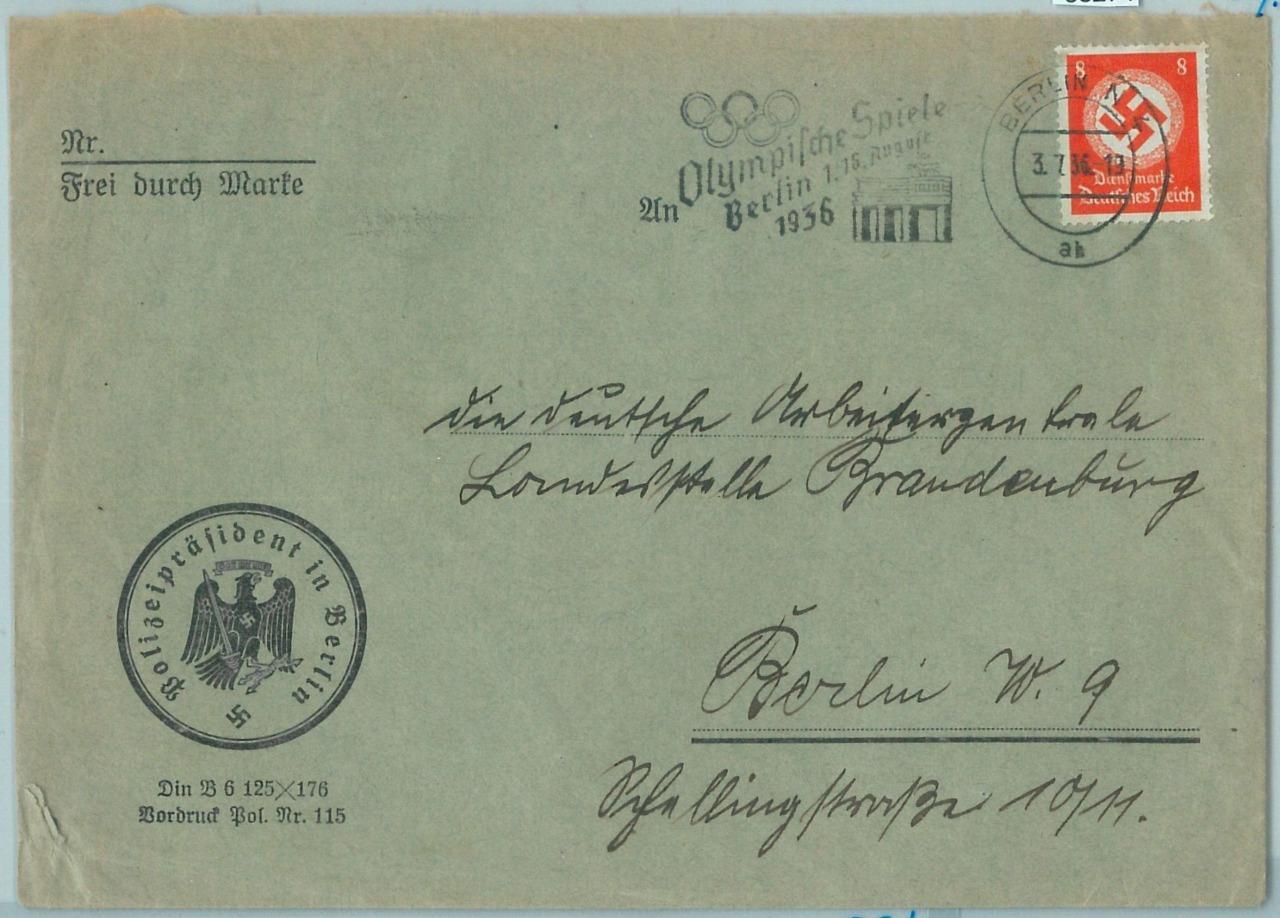 Nr.
Frei durch Marke
An
Olympische Spiele
Berlin 1.-16. August
1936
BERLIN N
3.7.36.-19
8 8
Dienstmarke
Deutsches Reich
die deutsche Arbeiterzentrale
Landesstelle Brandenburg
Berlin W. 9
Schellingstraße 10/11.
Polizeipräsident in Berlin
Din B 6 125×176
Vordruck Pol. Nr. 115